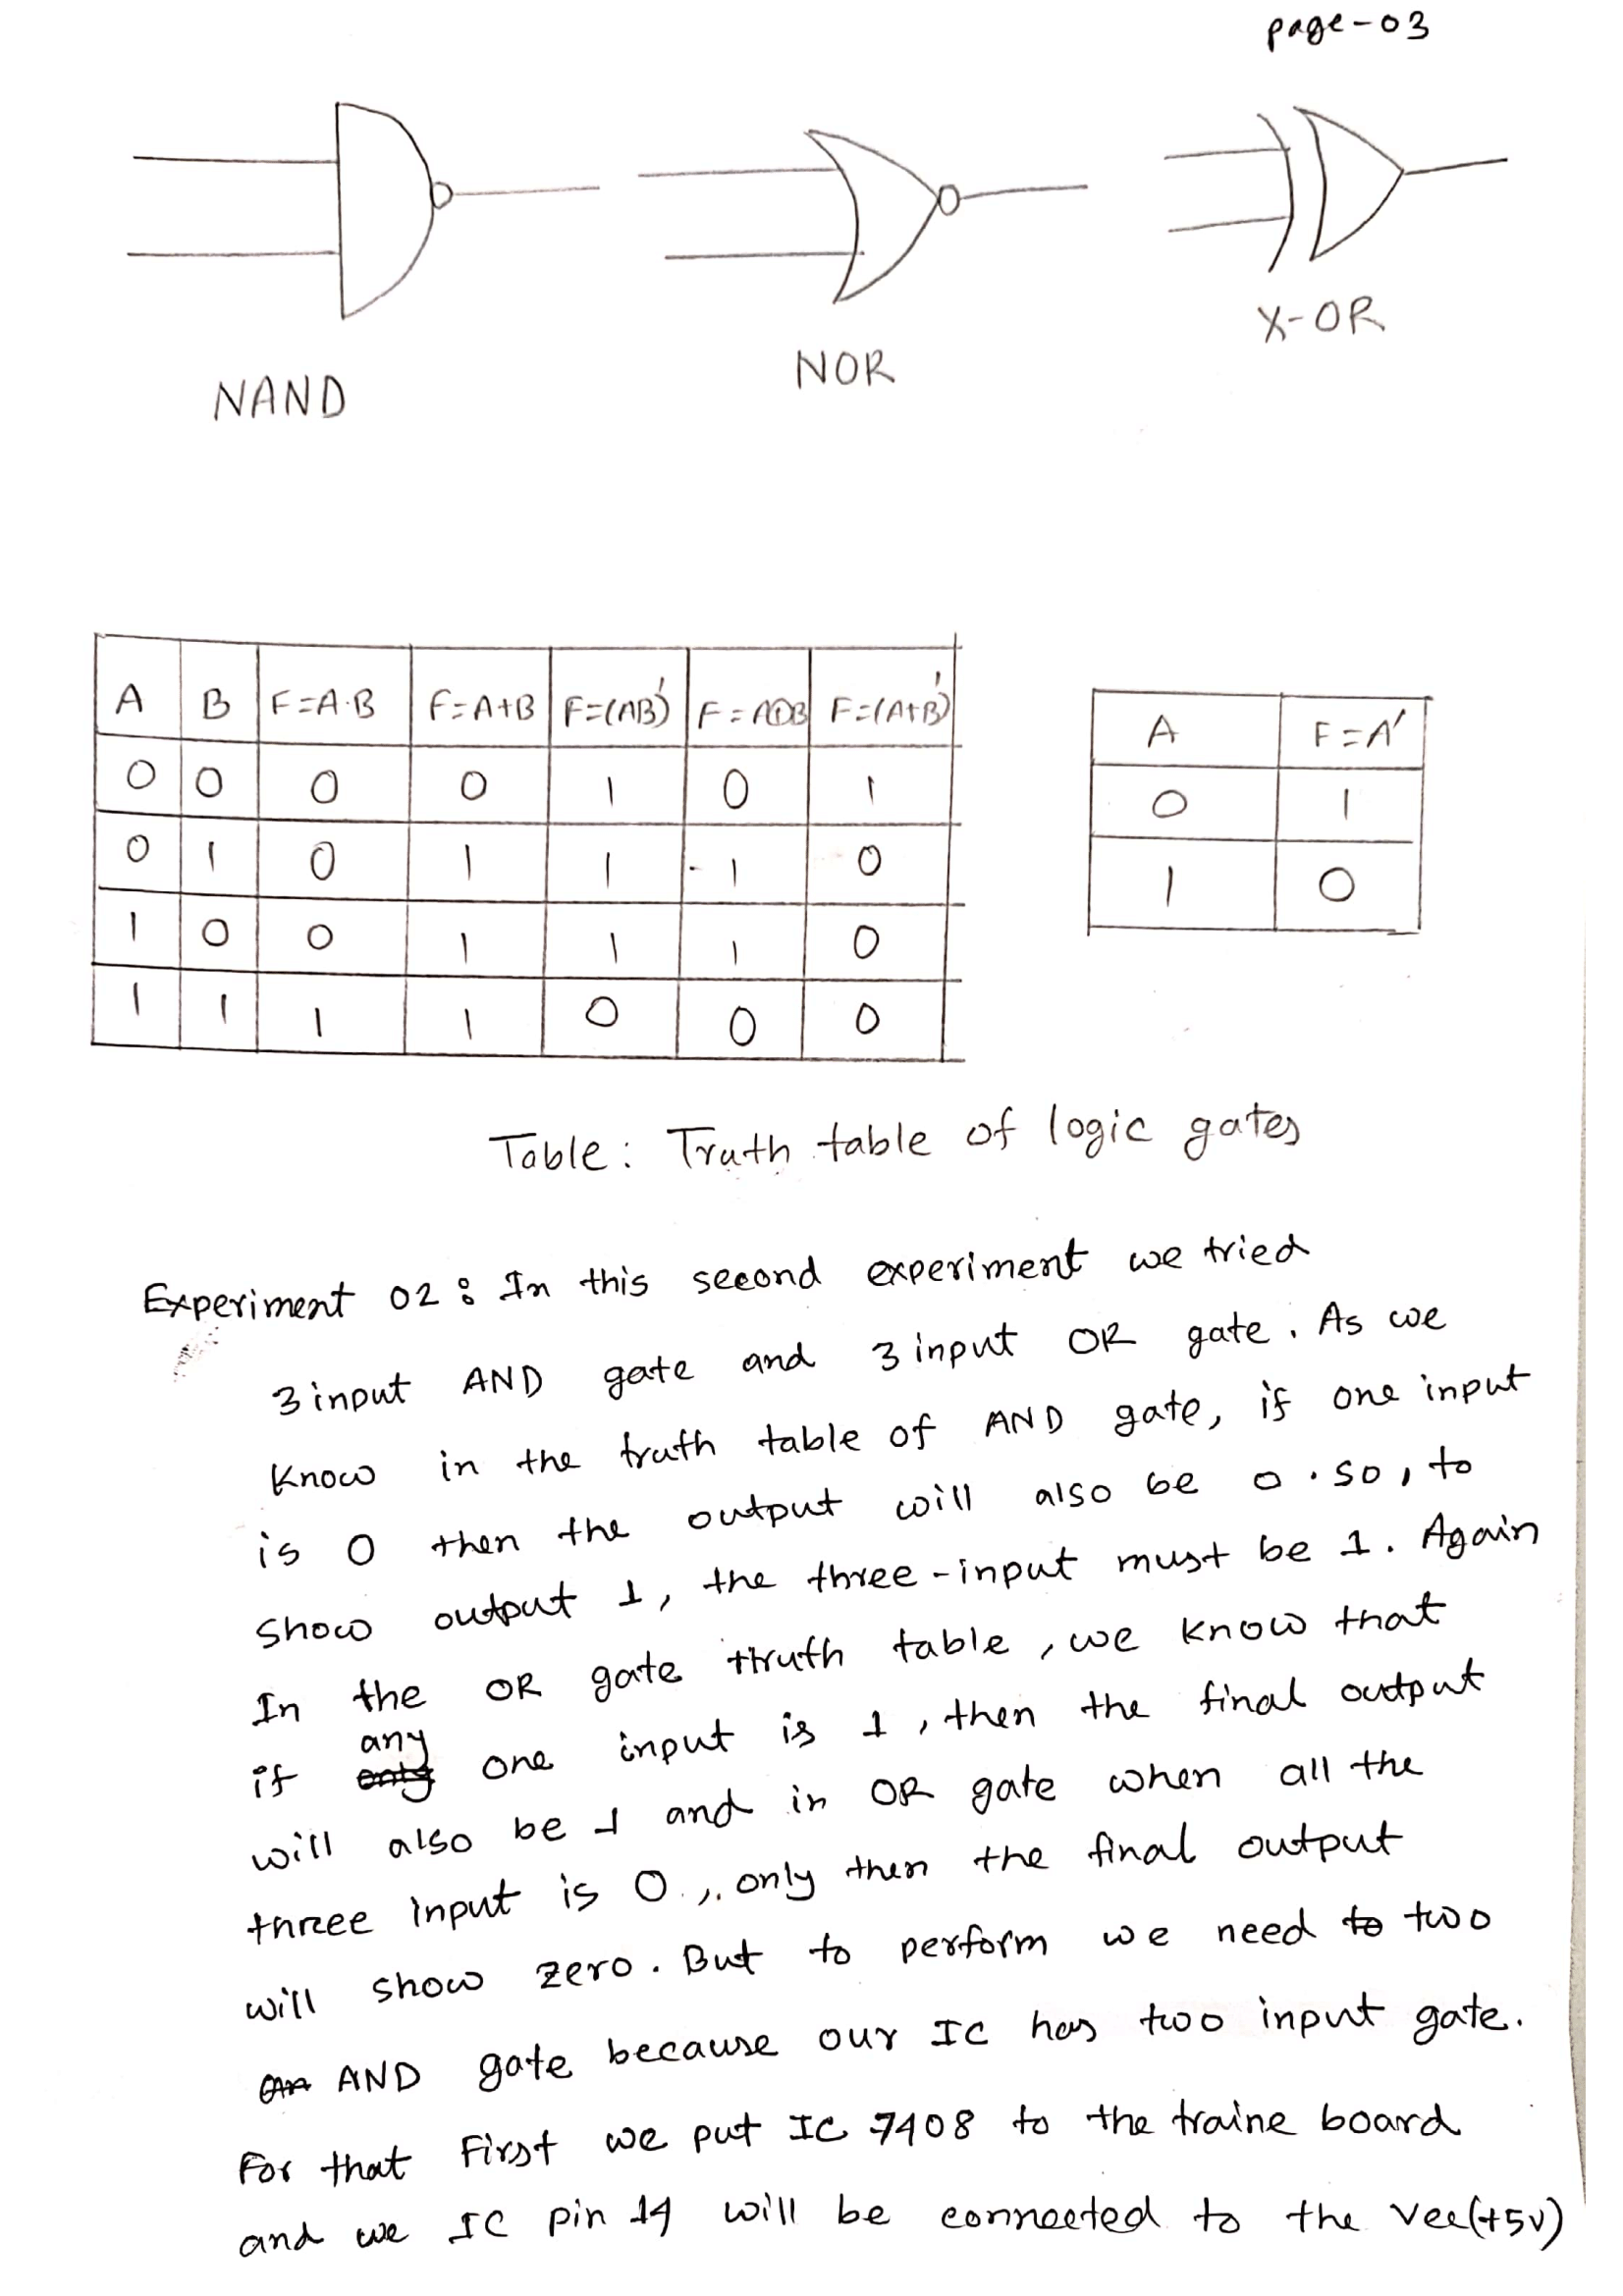 page-03
NAND
NOR
X-OR
A B F=A·B F=A+B F=(AB)' F=A⊕B F=(A+B)'
0 0 0 0 1 0 1
0 1 0 1 1 1 0
1 0 0 1 1 1 0
1 1 1 1 0 0 0
A F=A'
0 1
1 0
Table: Truth table of logic gates
Experiment 02: In this second experiment we tried
3 input AND gate and 3 input OR gate. As we
know in the truth table of AND gate, if one input
is 0 then the output will also be 0. so, to
show output 1, the three-input must be 1. Again
In the OR gate ttruth table, we know that
if any one input is 1, then the final output
will also be 1 and in OR gate when all the
three input is 0, only then the final output
will show zero. But to perform we need to two
an AND gate because our IC has two input gate.
For that First we put IC 7408 to the traine board
and we IC pin 14 will be connected to the Vcc(+5v)